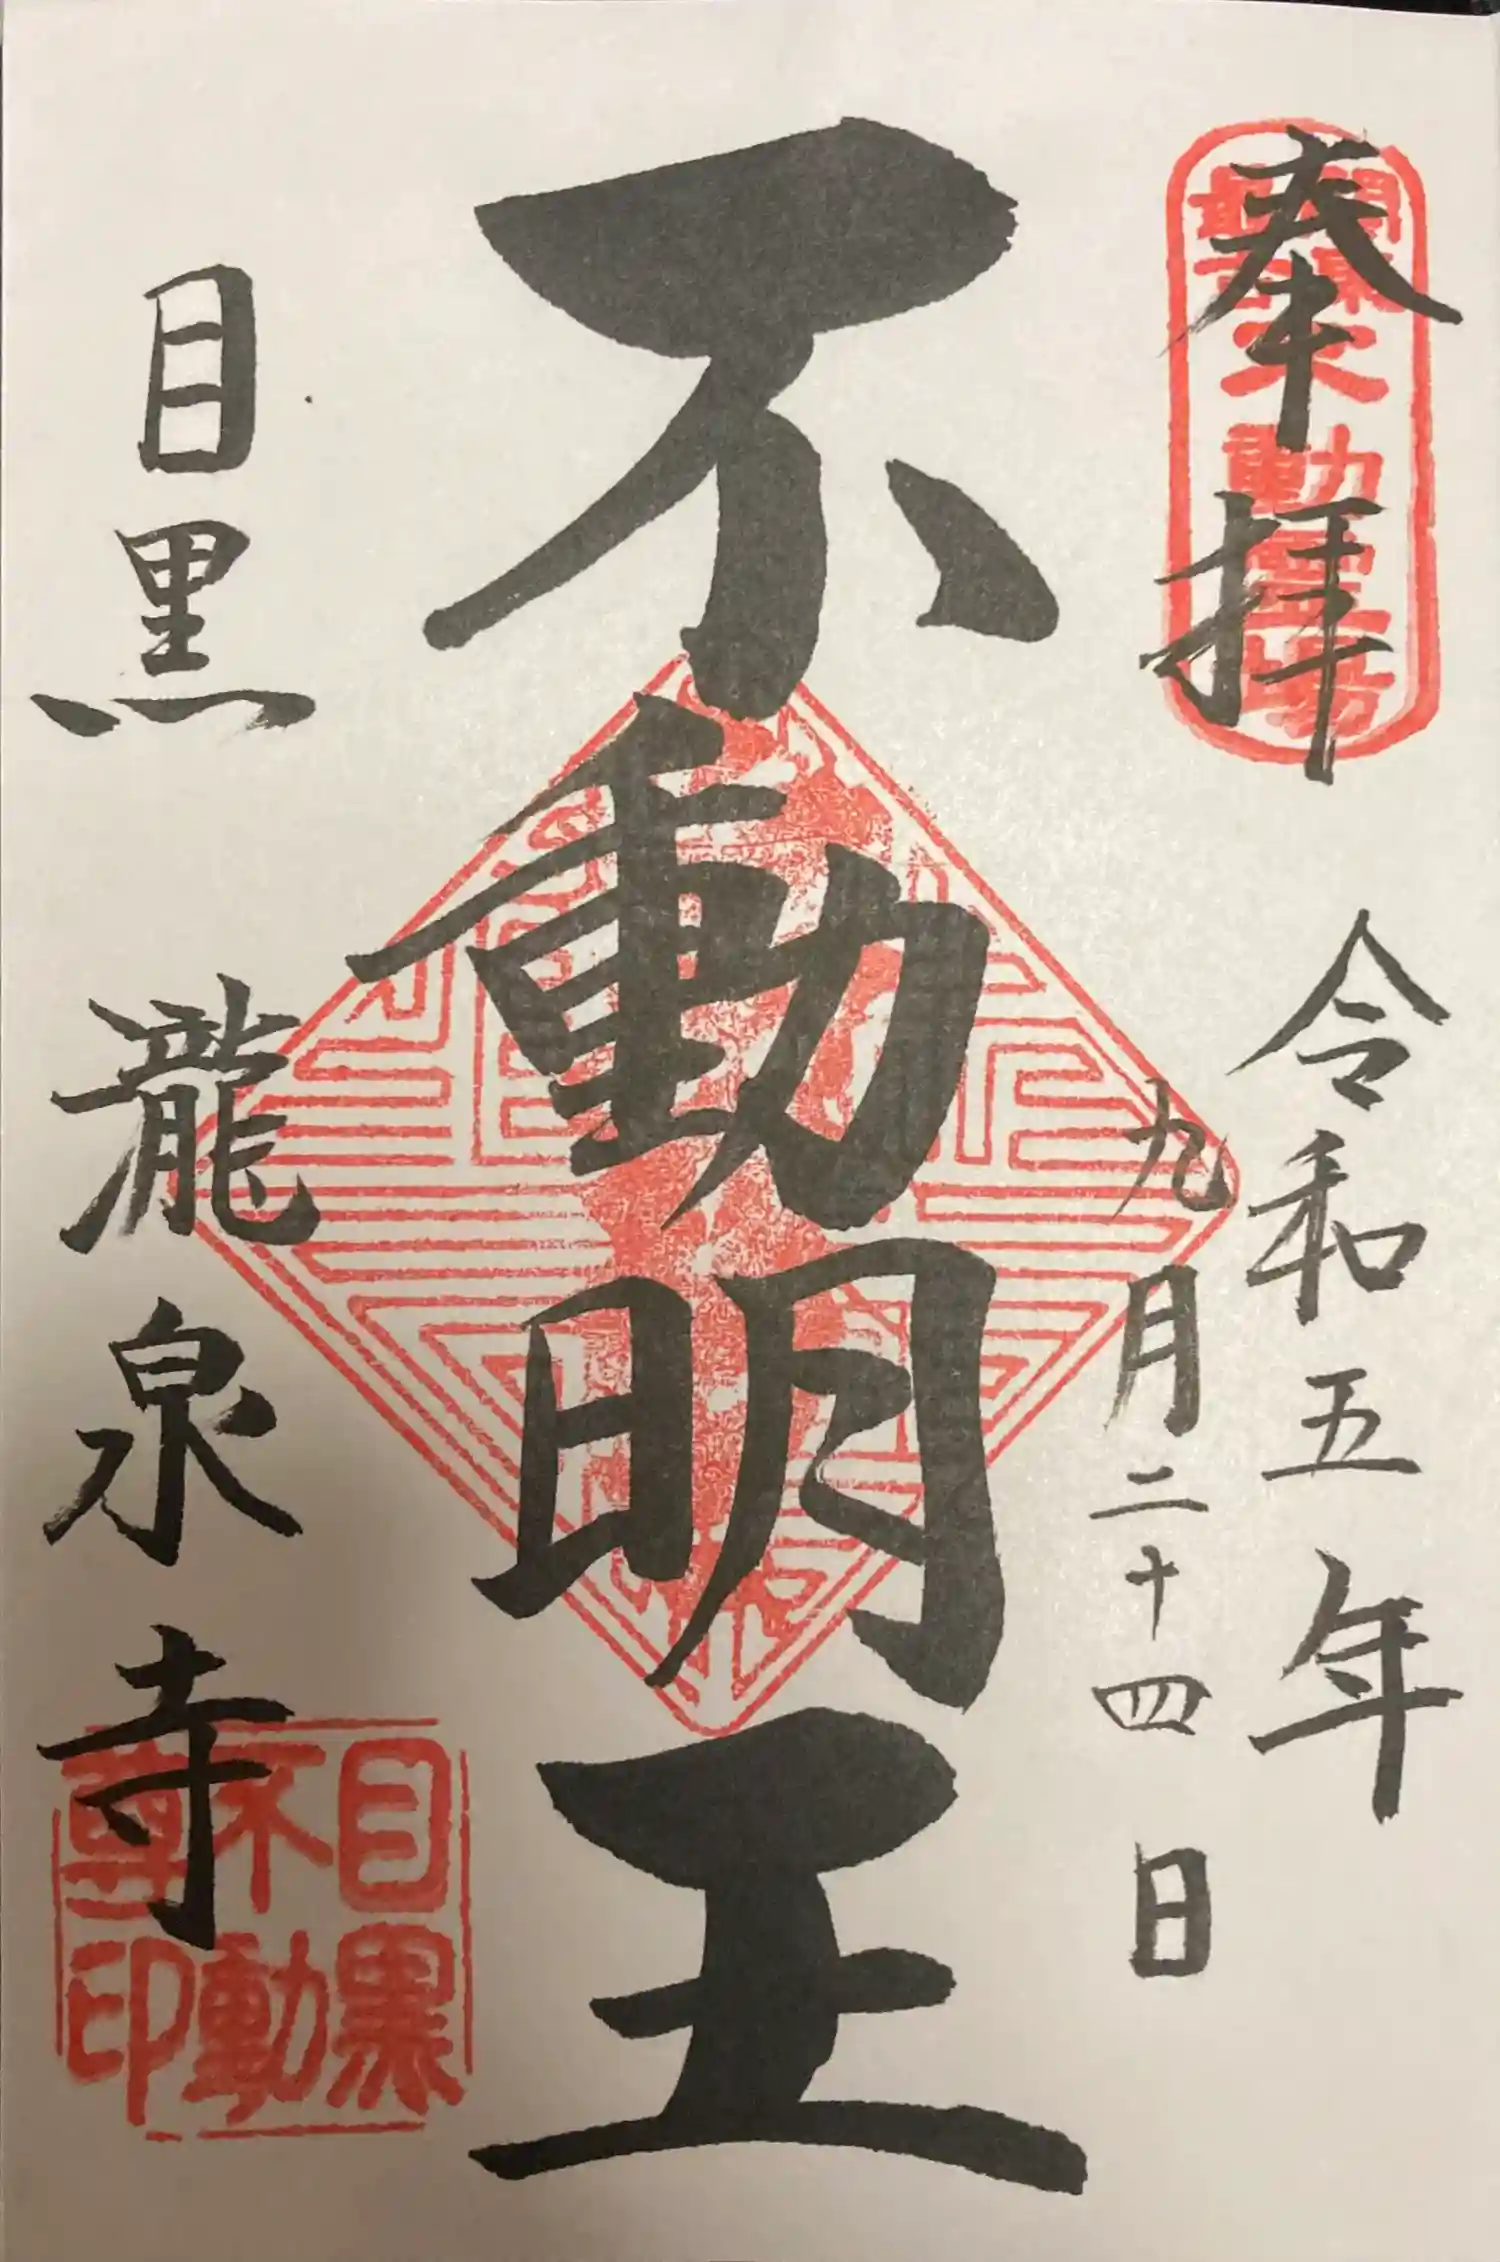 奉拝
関東最古不動霊場
令和五年
九月二十四日
不動明王
目黒 瀧泉寺
目黒不動尊印